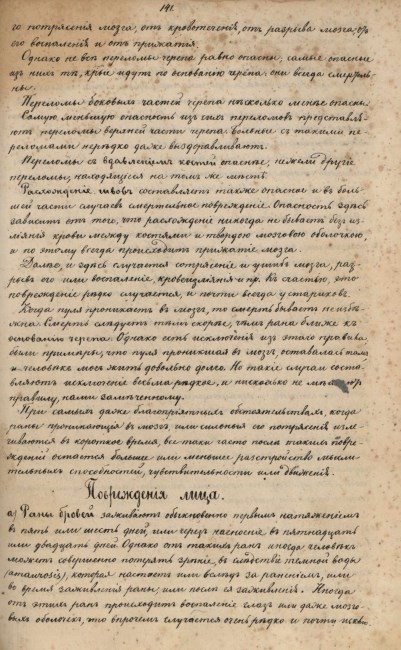 191.
го потрясенія мозга, отъ кровотеченія, отъ разрыва мозга, отъ
его воспаленія и отъ прижатія.
Однако не всѣ переломы черепа равно опасны, самые опасные
изъ нихъ тѣ, кои идутъ по основанію черепа: они всегда смертель-
ны.
Переломы боковыхъ частей черепа нѣсколько менѣе опасны.
Самую меньшую опасность изъ сихъ переломовъ представля-
ютъ переломы верхней части черепа больные съ такими пе-
реломами нерѣдко даже выздоравливаютъ.
Переломы съ вдавленіемъ костей опаснѣе, нежели другіе
переломы, находящіеся на томъ же мѣстѣ.
Расхожденіе швовъ составляетъ также опасное и въ боль-
шей части случаевъ смертельное поврежденіе. Опасность здѣсь
зависитъ отъ того, что расхожденіе никогда не бываетъ безъ из-
ліянія крови между костями и твердою мозговою оболочкою,
и по этому всегда происходитъ прижатіе мозга.
Далѣе, и здѣсь случается сотрясеніе и ушибъ мозга, раз-
рывъ его или воспаленіе, кровоизліянія и пр. Къ счастью, это
поврежденіе рѣдко случается, и почти всегда у стариковъ.
Когда пуля проникаетъ въ мозгъ, то смерть бываетъ неизбѣ-
жна. Смерть слѣдуетъ тѣмъ скорѣе, чѣмъ рана ближе къ
основанію черепа. Однако есть исключенія изъ этаго правила,
были примѣры, что пуля проникшая въ мозгъ, оставалась тамъ
и человѣкъ могъ жить довольно долго. Но такіе случаи соста-
вляютъ исключеніе весьма рѣдкое, и нисколько не
правилу, нами замѣченному.
При самыхъ даже благопріятныхъ обстоятельствахъ, когда
раны проникающія въ мозгъ, или сильныя его потрясенія изле-
чиваются въ короткое время, все таки часто послѣ такихъ повре-
жденій остается большее или меньшее разстройство мысли-
тельныхъ способностей, чувствительности или движенія.
Поврежденія лица.
а) Раны бровей заживаютъ обыкновенно первымъ натяженіемъ
въ пять или шесть дней, или чрезъ нагноеніе въ пятнадцать
или двадцать дней. Однако отъ такихъ ранъ иногда человѣкъ
можетъ совершенно потерять зрѣніе, въ слѣдствіе темной воды
(amaurosis), которая настаетъ или вслѣдъ за раненіемъ, или
во время заживленія раны, или послѣ ея заживленія. Иногда
отъ этихъ ранъ происходитъ воспаленіе глазъ или даже мозго-
выхъ оболочекъ, что впрочемъ случается очень рѣдко и почти исклю-